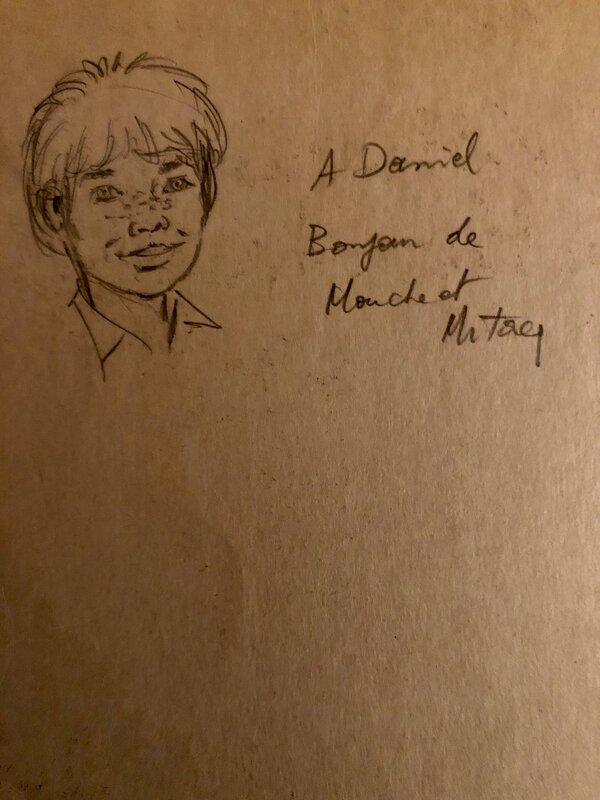 A Daniel
Bonjour de
Mouche et
MiTacq